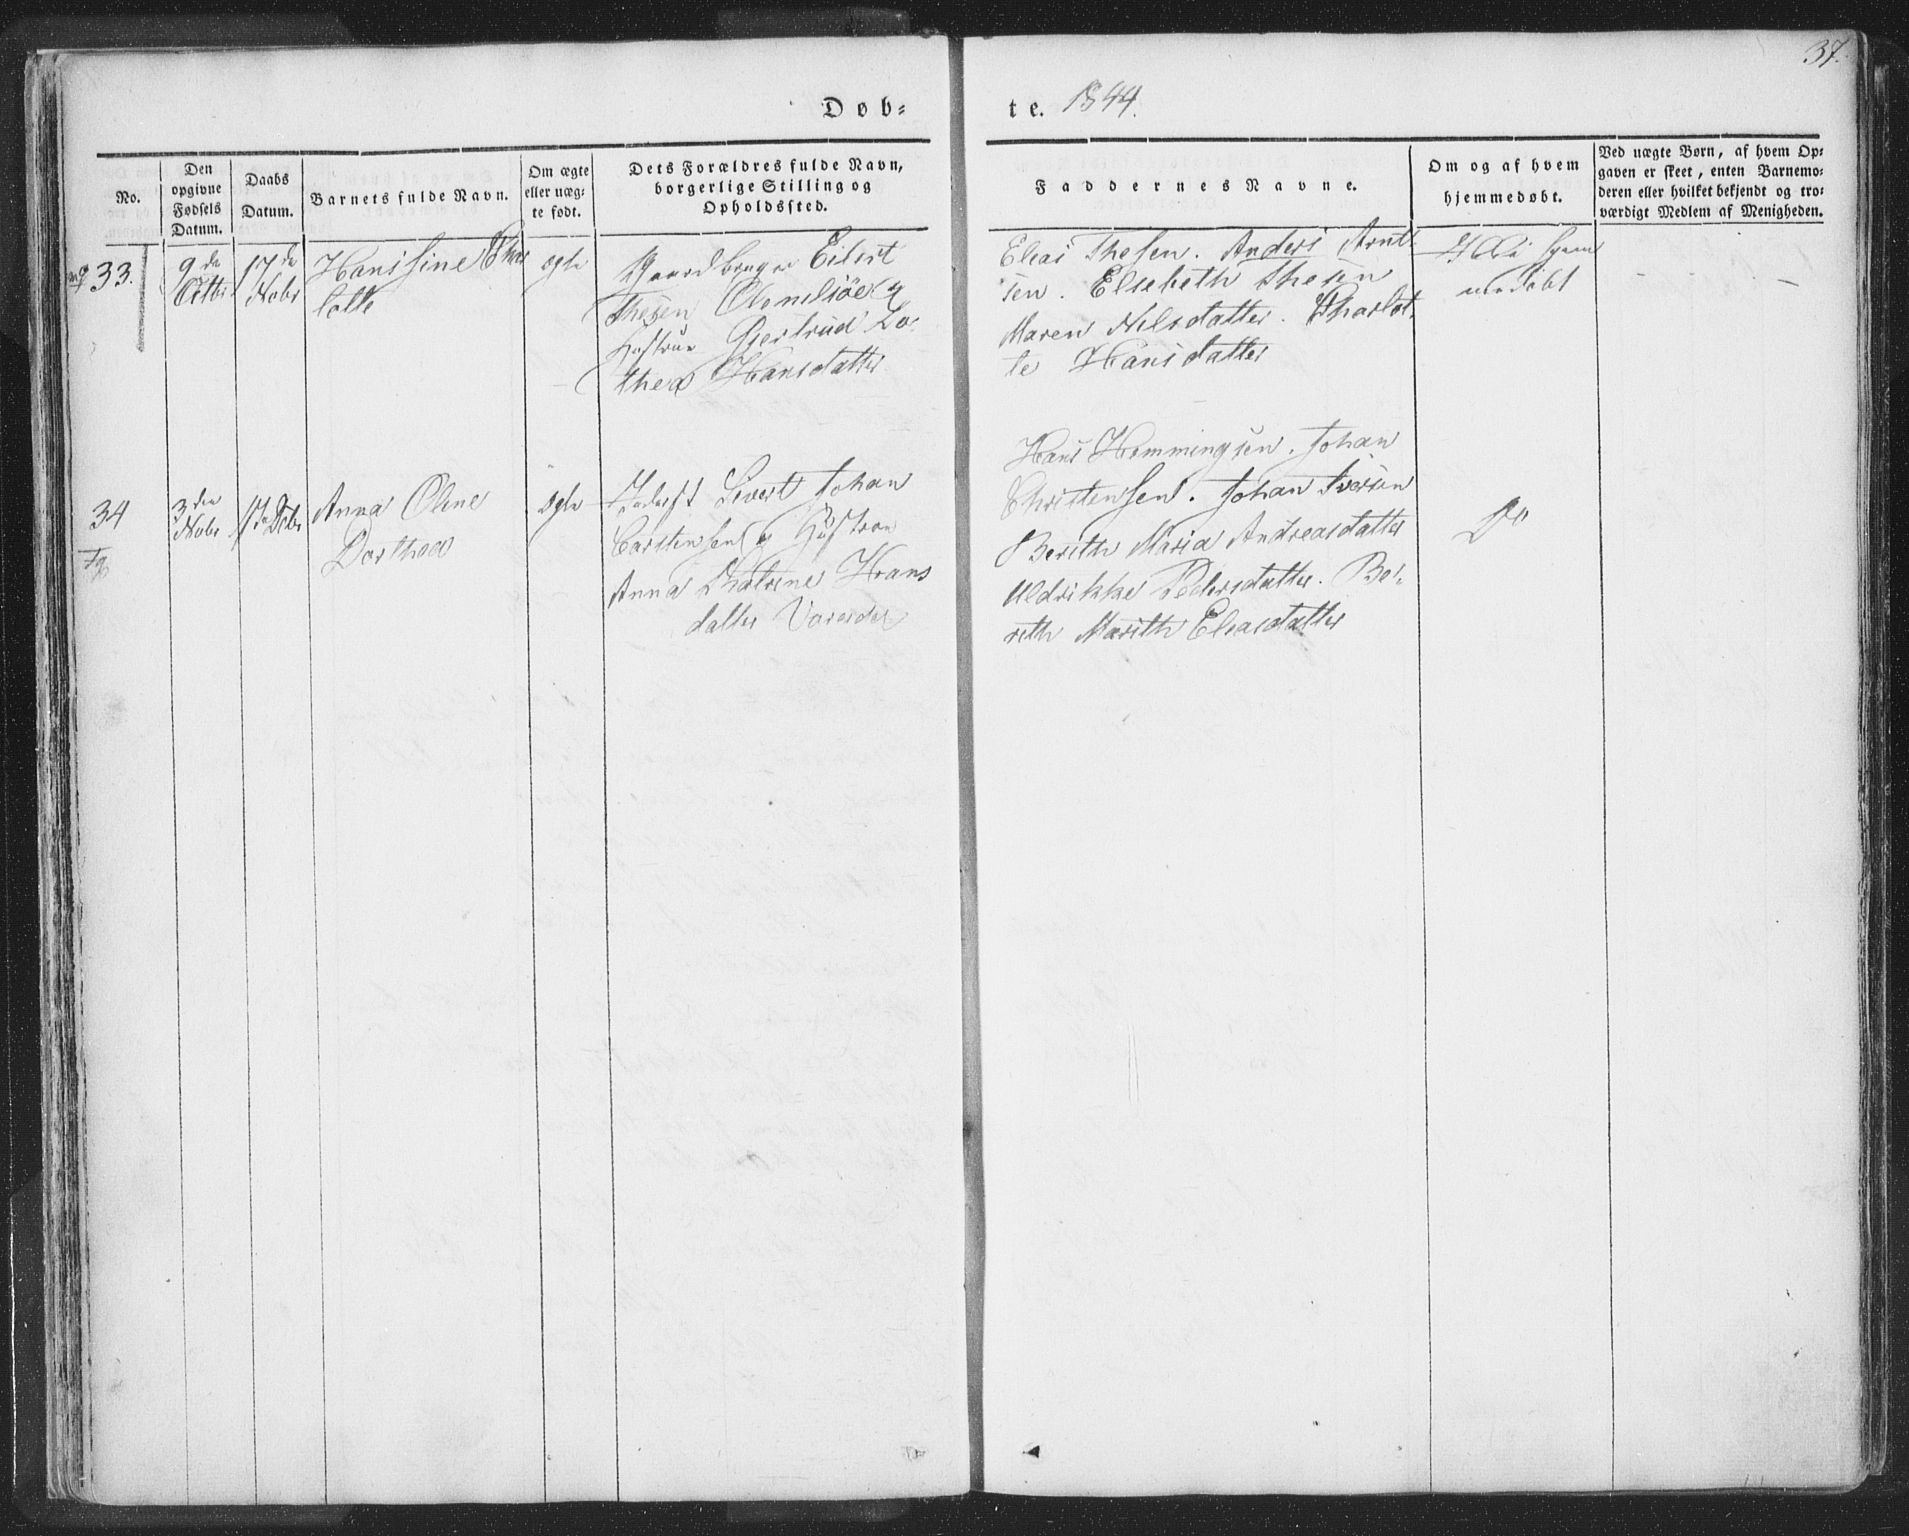 37.
Døb-
te. 1844.
No.
Den
opgivne
Fødsels
Datum.
Daabs
Datum.
Barnets fulde Navn.
Om ægte
eller uæg-
te født.
Dets Forældres fulde Navn,
borgerlige Stilling og
Opholdssted.
Faddernes Navne.
Om og af hvem
hjemmedøbt.
Ved uægte Børn, af hvem Op-
gaven er skeet, enten Barnemo-
deren eller hvilket bekjendt og tro-
værdigt Medlem af Menigheden.
33.
9de
Octbr
17de
Nobr
Hanssine Char
lotte
ægte
Gaardbruger Eilert
Thesen &
Hustrue Gjertrud Do-
thea Hansdatter
Elias Thesen. Anders Arnt-
sen. Elsebeth Thesen
Maren Nilsdatter. Charlot-
te Hansdatter
Ei hjem
medøbt
34
3den
Nobr
17 Debr
Anna Oline
Dorthea
ægte
Inderst Sivert Johan
Carstensen & Hustrue
Anna Katrine Hans
datter
Hans Hemmingsen. Johan
Christensen. Johan Iversen
Berith Maria Andreasdatter
Uldrikke Pedersdatter. Be-
rith Marith Eliasdatter
Do